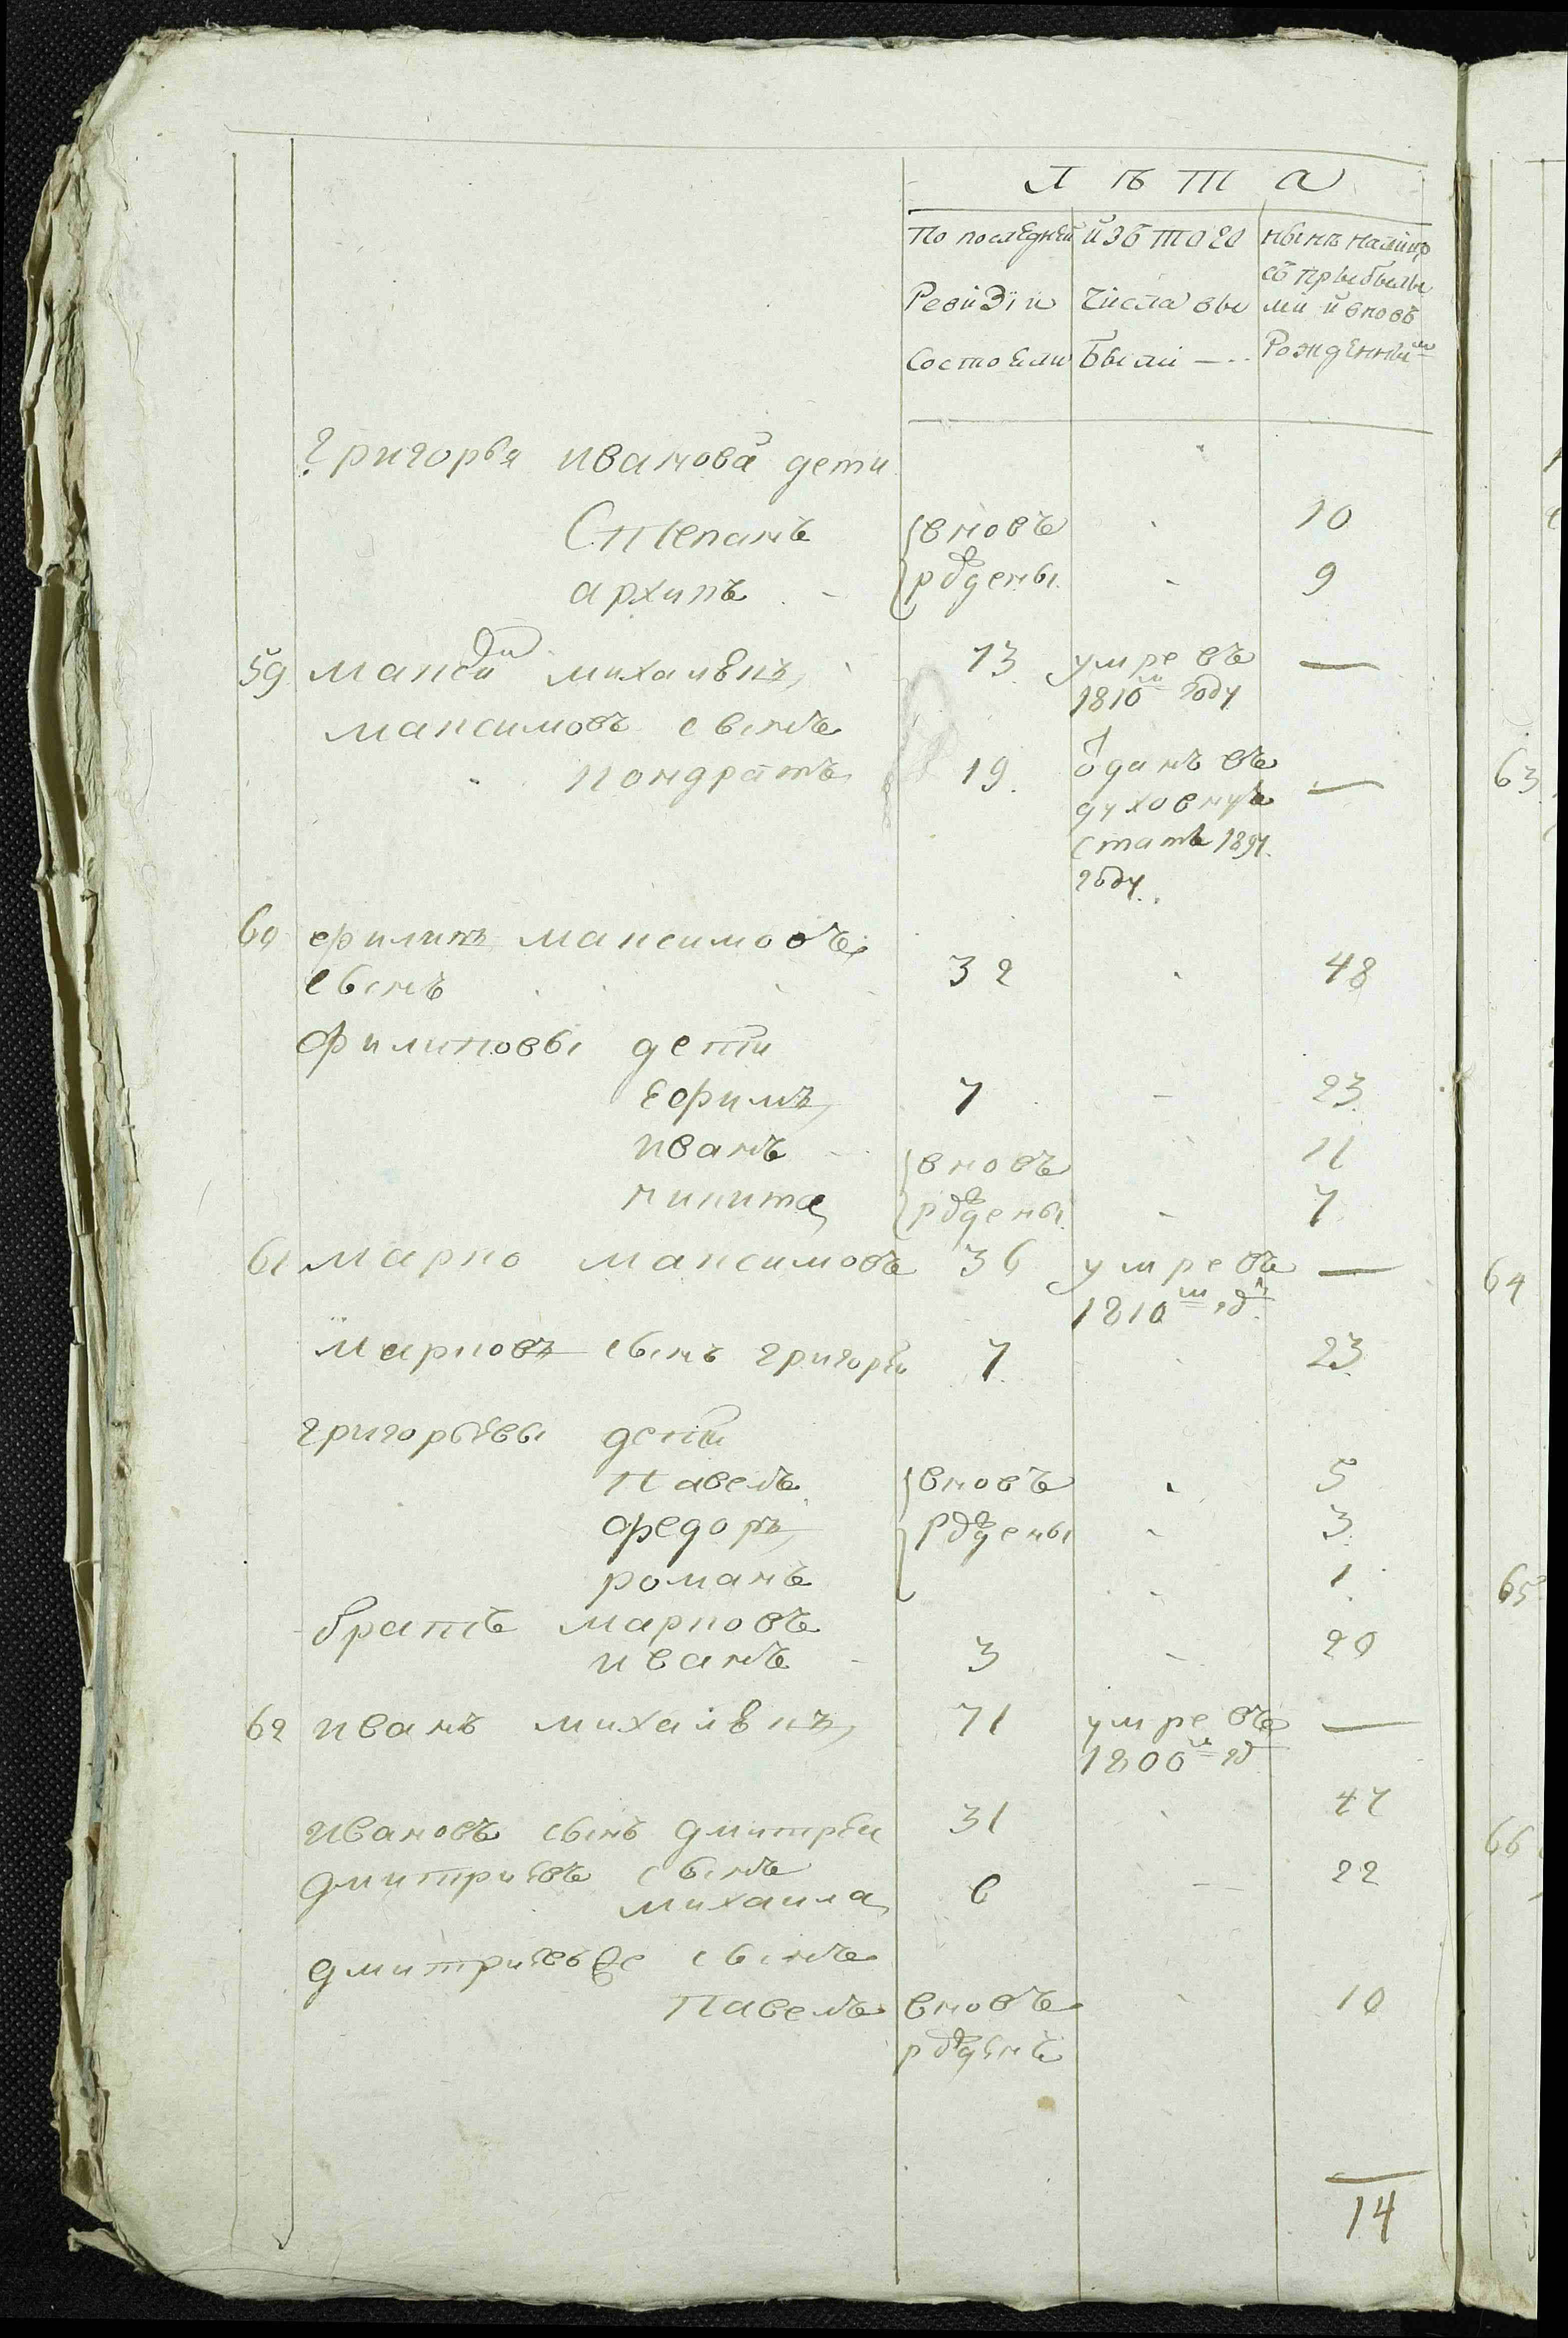 Л Ѣ Т А
По последней изъ того ныне налицо
съ прибылы
Ревизiи числа вы ми и вновь
Состояли были — Рожденными
Григорья иванова дети
Степанъ вновь 10
архипъ рождены 9
59 максим михалевъ 73 умре въ —
1810м году
максимовъ сынъ
кондратъ 19 отданъ въ —
духовную
стать
году
60 филипъ максимовъ
сынъ 32 48
филиповы дети
Ефимъ 7 23
иванъ вновь 11
никита рождены 7
61 марко максимовъ 36 умре въ —
1810м год
марковъ сынъ григорей 7 23
григорьевы дети
Павелъ вновь 5
федоръ рождены 3
романъ 1
братъ марковъ
иванъ 3 20
62 иванъ михалевъ 71 умре въ —
1800м год
ивановъ сынъ дмитрей 31 47
дмитриевъ сынъ
михаила 6 22
дмитриевъ же сынъ
Павелъ вновь 10
рожденъ
14
63
64
65
66